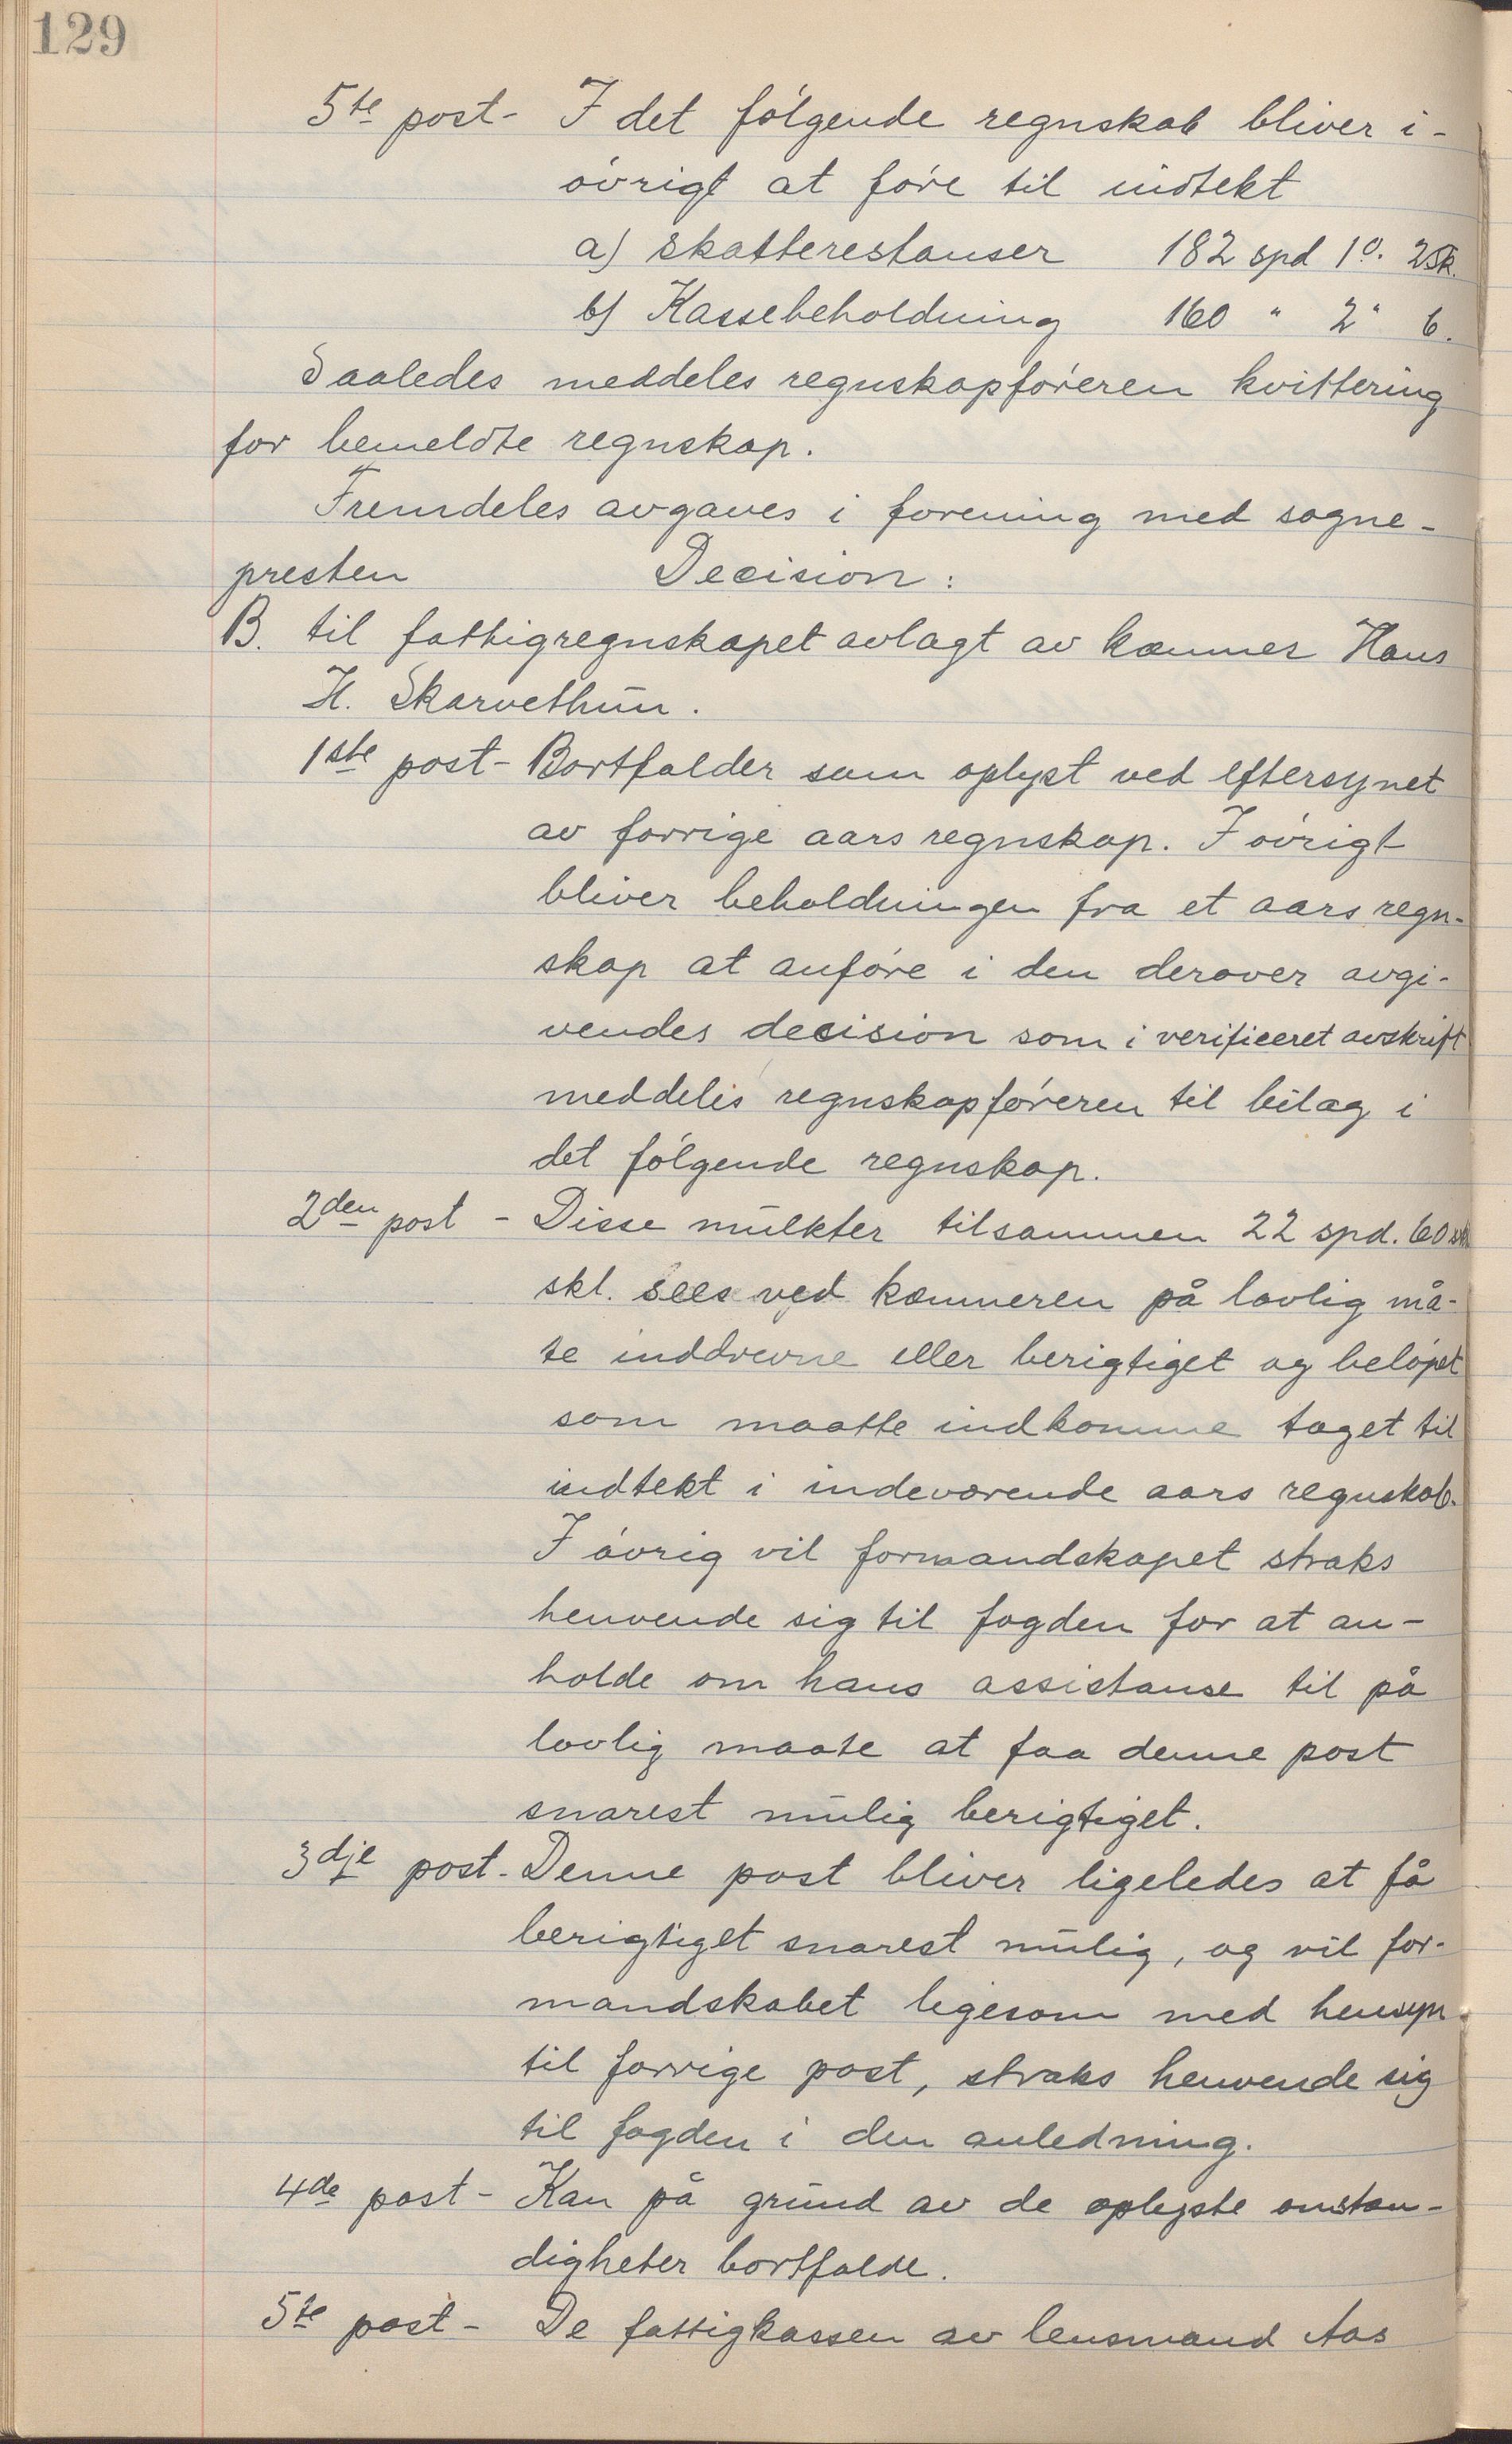 129
5te post- I det følgende regnskab bliver i-
øvrigt at føre til indtekt
a) Skatterestanser 182 spd 1 o. 2 sk.
b) Kassebeholdning 160 " 2 " 6.
Saaledes meddeles regnskapføreren kvittering
for bemeldte regnskap.
Fremdeles avgaves i forening med sogne-
presten Decision:
B. til fattigregnskapet avlagt av kæmner Hans
H. Skarvethun.
1ste post- Bortfalder som oplyst ved eftersynet
av forrige aars regnskap. I øvrigt
bliver beholdningen fra et aars regn-
skap at anføre i den derover avgi-
vendes decision som i verificeret avskrift
meddeles regnskapføreren til bilag i
det følgende regnskap.
2den post - Disse mulkter tilsammen 22 spd. 60
skl. sees ved kæmneren på lovlig må-
te inddrevne eller berigtiget og beløpet
som maatte indkomme taget til
indtekt i indeværende aars regnskab.
I øvrig vil formandskapet straks
henvende sig til fogden for at an-
holde om hans assistanse til på
lovlig maate at faa denne post
snarest mulig berigtiget.
3dje post- Denne post bliver ligeledes at få
berigtiget snarest mulig, og vil for-
mandskabet ligesom med hensyn
til forrige post, straks henvende sig
til fogden i den anledning.
4de post- Kan på grund av de oplyste omstæn-
digheter bortfalde.
5te post- De fattigkassen av lensmand Aas